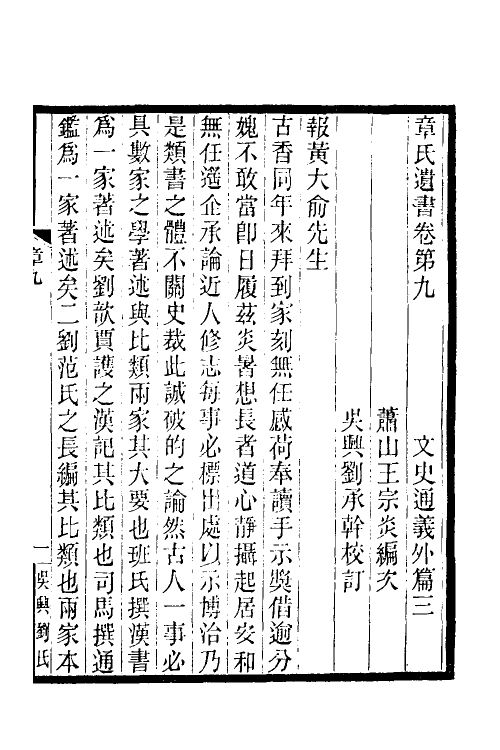 章氏遺書卷第九　文史通義外篇三
蕭山王宗炎編次
吳興劉承幹校訂
報黃大俞先生
古香同年來拜到家刻無任感荷奉讀手示奬借逾分
媿不敢當卽日履茲炎暑想長者道心靜攝起居安和
無任遥企承論近人修志每事必標出處以示博洽乃
是類書之體不關史裁此誠破的之論然古人一事必
具數家之學著述與比類兩家其大要也班氏撰漢書
爲一家著述矣劉歆賈護之漢記其比類也司馬撰通
鑑爲一家著述矣二劉范氏之長編其比類也兩家本
章九
一
吳興劉氏